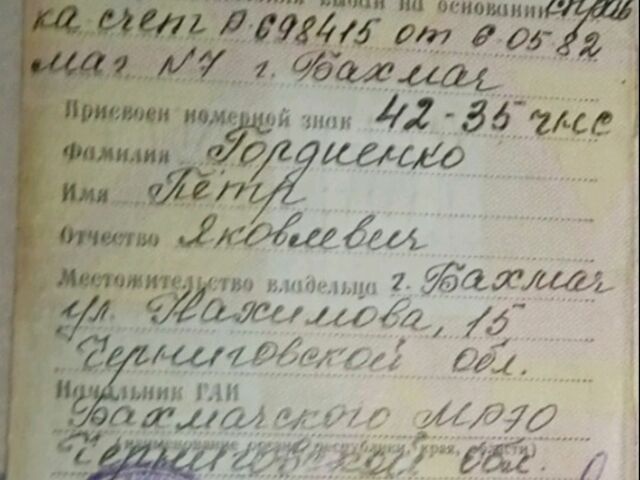 выдан на основании справ
ка счет А.698415 от 6.05.82
маг N7 г. Бахмач
Присвоен номерной знак 42-35 чнс
Фамилия Гордиенко
Имя Пётр
Отчество Яковлевич
Местожительство владельца г. Бахмач
ул. Нахимова, 15
Черниговской обл.
Начальник ГАИ
Бахмачского МРЭО
(наименование органа республики, края, области)
Черниговской обл.